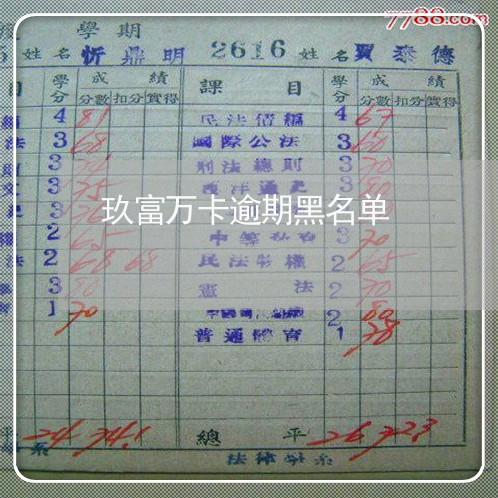 7788.com
學期
姓名 忻鼎明 2616 姓名 賈泰德
目 學分 成績 課目 學分 成績
分數 扣分 實得 分數 扣分 實得
4 81 民法債編 4 67
法 3 68 國際公法 3 60
3 刑法總則 3 70
3 75 西洋通史 3
玖富万卡逾期黑名单
2 65 3 70
法 2 68 68 民法物權 2 65
3 憲法 2 70
1 70 2 80
普通體育 1 78
平 24 74.1 總平 26 72.3
系 法律學系